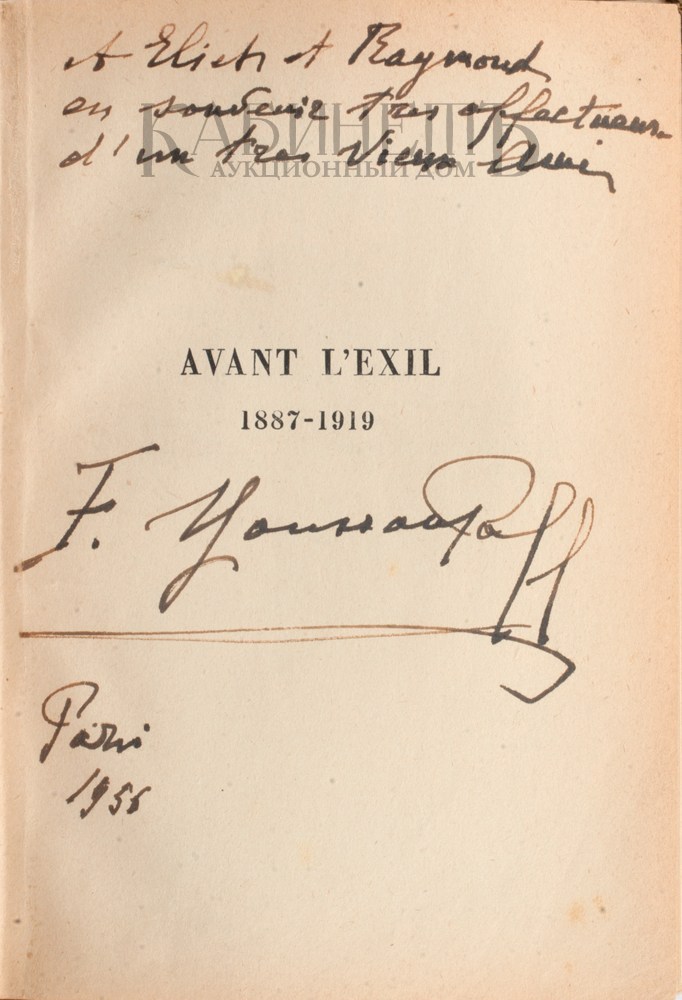 A Elisth et Raymond
en souvenir tres affectueux
d'un tres vieux Ami
КАБИНЕТЪ
АУКЦИОННЫЙ ДОМ
AVANT L'EXIL
1887-1919
F. Youssoupoff
Paris
1956